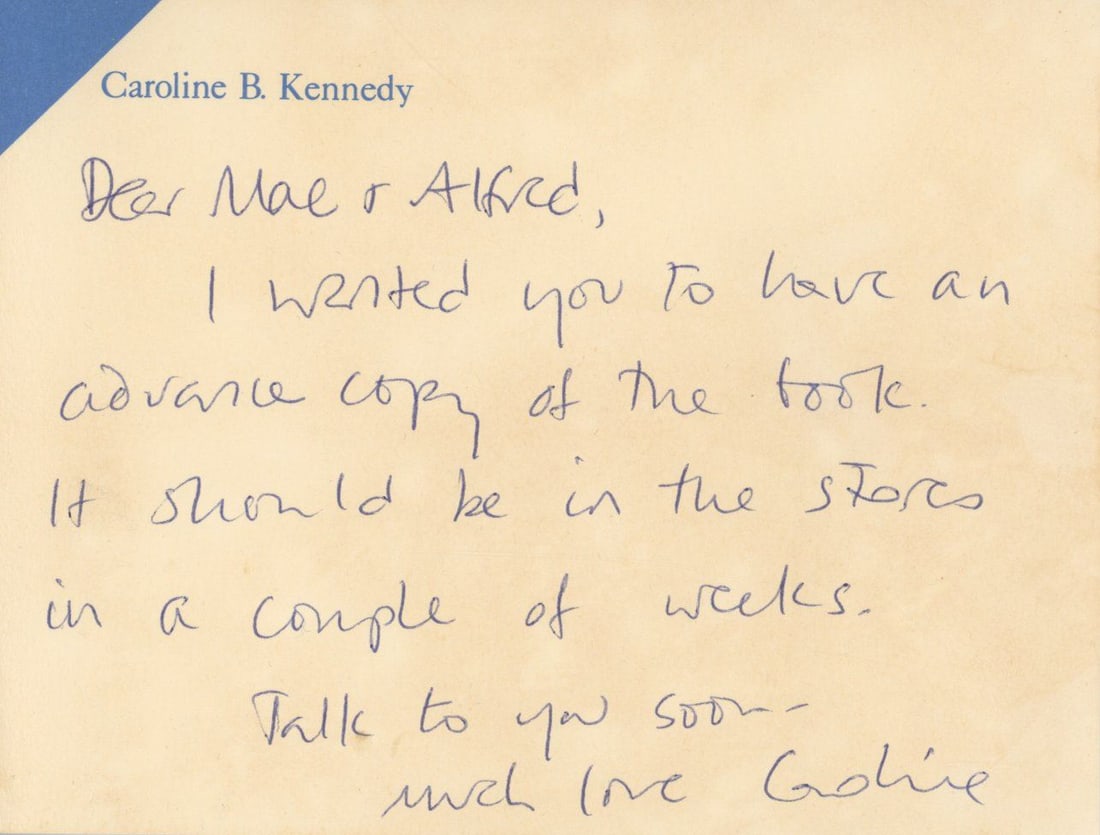 Caroline B. Kennedy
Dear Mae & Alfred,
I wanted you to have an
advance copy of the book.
It should be in the stores
in a couple of weeks.
Talk to you soon -
much love Caroline